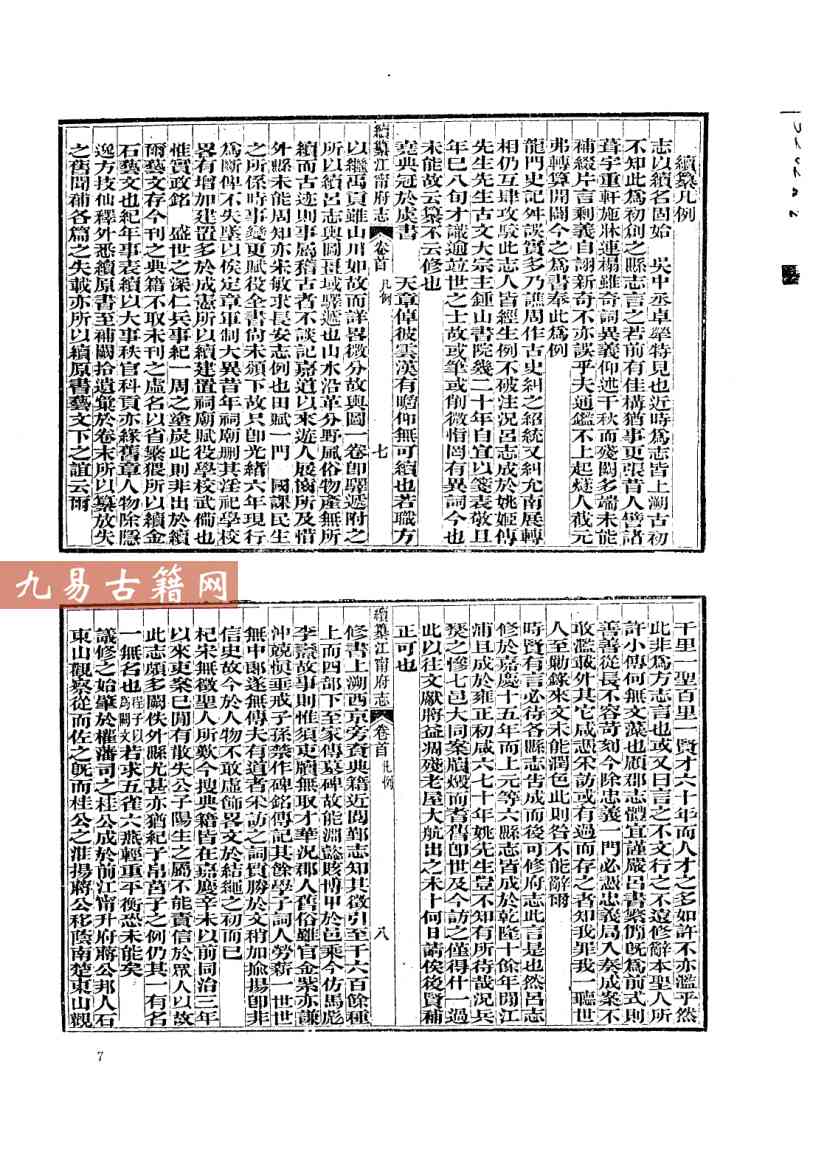 續纂凡例
志以續名固始 吳中丞卓犖特見也近時爲志皆上溯古初
不知此爲初創之縣志言之若前有佳構猶事更張昔人譬諸
葺宇重軒施牀連榻雖奇詞異義仰述千秋而殘闕多端未能
補綴片言剩義自詡新奇不亦誤乎夫通鑑不上起燧人截元
弗轉算開闢今之爲書奉此爲例
龍門史記舛誤實多乃譙周作古史糾之紹統又糾允南展轉
相仍互肆攻駮此志人皆經生例不破注況呂志成於姚姬傳
先生先生古文大宗主鍾山書院幾二十年自宜以箋表敬且
年巳八旬才識逾竝世之士故或筆或削微悟罔有異詞今也
未能故云纂不云修也
堯典冠於虞書 天章倬彼雲漢有瞻仰無可續也若職方
續纂江甯府志 卷首 凡例 七
以繼禹貢雖山川如故而詳畧微分故輿圖一卷卽驛遞附之
所以續呂志輿圖疆域驛遞也山水沿革分野風俗物產無所
續而古迹則事屬稽古者不談記嘉道以來遊人展齒所及惜
外縣未能周知亦朱敏求長安志例也田賦一門 國課民生
之所係時事變更賦役全書尙未頒下故只卽光緒六年現行
爲斷俾不失墜以俟定章軍制大異昔年祠廟刪其淫祀學校
畧有增加建置多於咸憲所以續建置祠廟賦役學校武僃也
惟實政銘 盛世之深仁兵事紀一周之塗炭此則非出於續
爾藝文存今刊之典籍不取未刊之虛名以省縈猥所以續金
石藝文也紀年事表續以大事秩官科貢亦緣舊章人物除隱
逸方技仙釋外悉續原書至補闕拾遺彙於卷末所以纂放失
之舊聞補各篇之失載亦所以續原書藝文下之誼云爾
千里一聖百里一賢才六十年而人才之多如許不亦濫乎然
此非爲方志言也或又曰言之不文行之不遠修辭本聖人所
許小傳何無文藻也顧郡志體宜謹嚴呂書繁僩旣爲前式則
善善從長不容奇刻今除忠義一門必憑忠義局入奏成案不
敢濫敢外其它咸憑采訪或有過而存之者知我罪我一聽世
人至勦錄來文未能潤色此則咎不能辭爾
時賢有言必待各縣志告成而後可修府志此言是也然呂志
修於嘉慶十五年而上元等六縣志皆成於乾隆十餘年閒江
浦且成於雍正初咸六七十年姚先生豈不知有所待哉況兵
燹之慘七邑大同案牘燬而耆舊卽世及今訪之僅得什一過
此以往文獻將益凋殘老屋大航出之未卜何日請俟後賢補
正可也
續纂江甯府志 卷首 凡例 八
修書上溯西京旁資典籍近閱鄞志知其徵引至千六百餘種
上而四部下至家傳墓碑故能淵懿賅博甲於邑乘今仿馬彪
李燾故事則惟須吏牘無取才華況郡人舊俗雖官金紫亦謙
沖兢愼垂戒子孫禁作碑銘傳記其餘學子詞人勞薪一世世
無中郞遂無傳夫有道者采訪之詞質勝於文稍加揄揚卽非
信史故今於人物不敢虛飾畧文於結繩之初而已
杞宋無徵聖人所歎今搜典籍皆在嘉慶辛未以前同治三年
以來東案已閒有散失公子陽生之屬不能責信於眾人以故
此志頗多闕佚外縣尤甚亦猶紀子帛莒子之例仍其一有名
一無名也程子以爲闕文若求五雀六燕輕重平衡恐未能矣
議修之始肇於權藩司之桂公成於前江甯升府蔣公邦人石
東山觀察從而佐之旣而桂公之淮揚蔣公移蔭南楚東山觀
7
九易古籍网